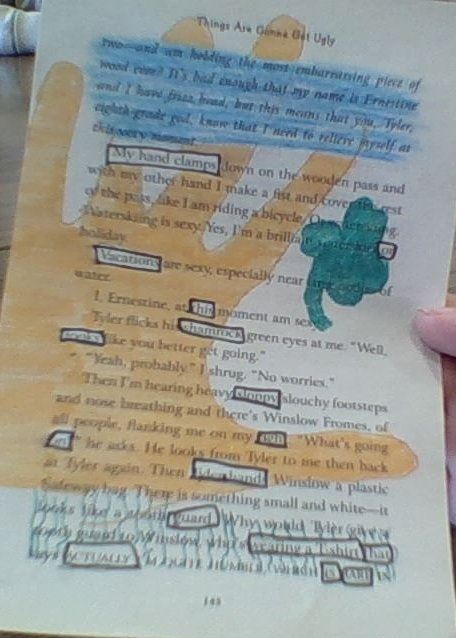 Things Are Gonna Get Ugly
two—and am holding the most embarrassing piece of
wood ever? It's bad enough that my name is Ernestine
and I have frizz head, but this means that you, Tyler,
eighth-grade god, know that I need to relieve myself at
this very moment.
My hand clamps down on the wooden pass and
with my other hand I make a fist and cover the rest
of the pass, like I am riding a bicycle. Or waterskiing.
Waterskiing is sexy. Yes, I'm a brilliant on
holiday.
Vacations are sexy, especially near large bodies of
water.
I, Ernestine, at this moment am sexy.
Tyler flicks his shamrock green eyes at me. "Well,
looks like you better get going."
"Yeah, probably." I shrug. "No worries."
Then I'm hearing heavy sloppy slouchy footsteps
and nose breathing and there's Winslow Fromes, of
all people, flanking me on my "What's going
on?" he asks. He looks from Tyler to me then back
at Tyler again. Then Tyler hands Winslow a plastic
Safeway bag. There is something small and white—it
looks like a mouth guard. Why would Tyler give a
mouth guard to Winslow, who's wearing a T-shirt that
says ACTUALLY which IS ART IS
145